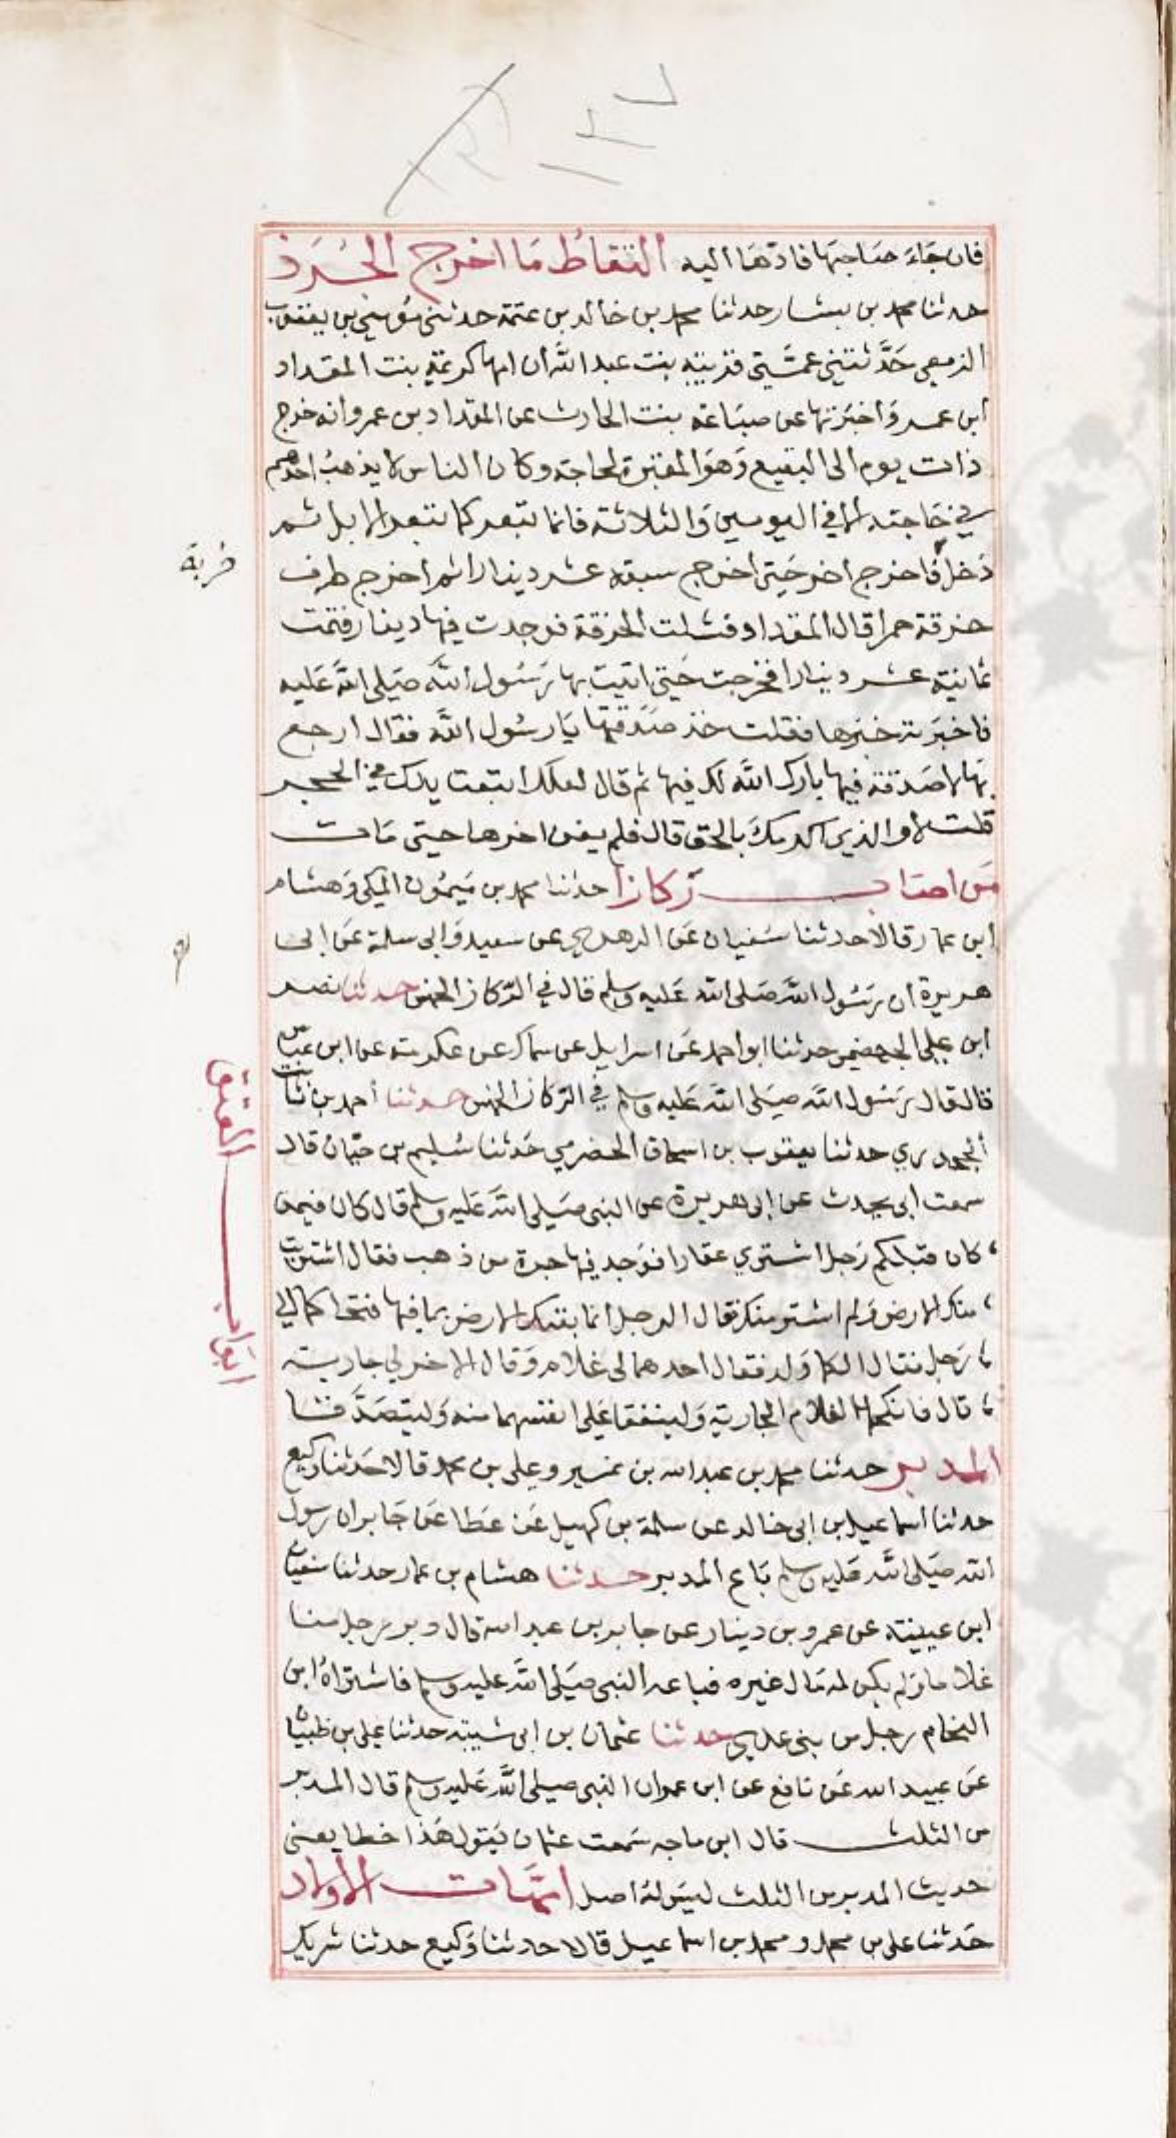 ١٣٧
فان جاء صاحبها فادها اليه التقاط ما اخرج الجرذ
حدثنا محمد بن بشار حدثنا محمد بن خالد بن عتمة حدثني موسى بن يعقوب
الزمعي حدثتني عمتي قريبة بنت عبد الله ان امها كريمة بنت المقداد
ابن عمرو اخبرتها عن ضباعة بنت الحارث عن المقداد بن عمرو انه خرج
ذات يوم الى البقيع وهو المقبرة لحاجة وكان الناس لا يذهب احدهم
في حاجته الا في اليومين والثلاثة فانما تبعد كما تبعد الابل ثم
دخل فاخرج اخر حتى اخرج سبعة عشر دينارا ثم اخرج طرف
خربة
خرقة حمرا قال المقداد فسللت الخرقة فوجدت فيها دينارا فتمت
ثمانية عشر دينارا فخرجت حتى اتيت بها رسول الله صلى الله عليه
فاخبرته خبرها فقلت خذ صدقتها يا رسول الله فقال ارجع
بها لا صدقة فيها بارك الله لك فيها ثم قال لعلك اتبعت يدك في الجحر
قلت لا والذي اكرمك بالحق قال فلم يفن اخرها حتى مات
من اصاب ركازا حدثنا محمد بن ميمون المكي وهشام
ابن عمار قالا حدثنا سفيان عن الزهري عن سعيد وابي سلمة عن ابي
هريرة ان رسول الله صلى الله عليه وسلم قال في الركاز الخمس حدثنا نصر
ابن علي الجهضمي حدثنا ابو احمد عن اسرايل عن سماك عن عكرمة عن ابن عباس
قال قال رسول الله صلى الله عليه وسلم في الركاز الخمس حدثنا احمد بن ثابت
الجحدري حدثنا يعقوب بن اسحاق الحضرمي حدثنا سليم بن حيان قال
سمعت ابي يحدث عن ابي هريرة عن النبي صلى الله عليه وسلم قال كان فيمن
كان قبلكم رجل اشترى عقارا فوجد فيها جرة من ذهب فقال اشتريت
منك الارض ولم اشتر منك فقال الرجل انما بعتك الارض بما فيها فتحاكما الى
رجل فقال الكما ولد فقال احدهما لي غلام وقال الاخر لي جارية
قال فانكحا الغلام الجارية ولينفقا على انفسهما منه وليتصدقا
المدبر حدثنا محمد بن عبد الله بن نمير وعلي بن محمد قالا حدثنا وكيع
حدثنا اسماعيل بن ابي خالد عن سلمة بن كهيل عن عطا عن جابر ان رسول
الله صلى الله عليه وسلم باع المدبر حدثنا هشام بن عمار حدثنا سفيان
ابن عيينة عن عمرو بن دينار عن جابر بن عبد الله قال دبر رجل منا
غلاما ولم يكن له مال غيره فباعه النبي صلى الله عليه وسلم فاشتراه ابن
النحام رجل من بني عدي حدثنا عثمان بن ابي شيبة حدثنا علي بن ظبيان
عن عبيد الله عن نافع عن ابن عمر ان النبي صلى الله عليه وسلم قال المدبر
من الثلث قال ابن ماجه سمعت عثمان يقول هذا خطا يعني
حديث المدبر من الثلث ليس له اصل امهات الاولاد
حدثنا علي بن محمد ومحمد بن اسماعيل قالا حدثنا وكيع حدثنا شريك